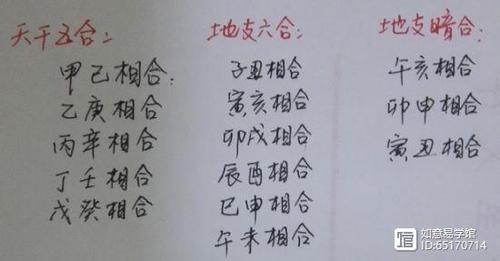 天干五合:
甲己相合:
乙庚相合
丙辛相合
丁壬相合
戊癸相合
地支六合:
子丑相合
寅亥相合
卯戌相合
辰酉相合
巳申相合
午未相合
地支暗合:
午亥相合
卯申相合
寅丑相合
如意易学馆
ID:65170714